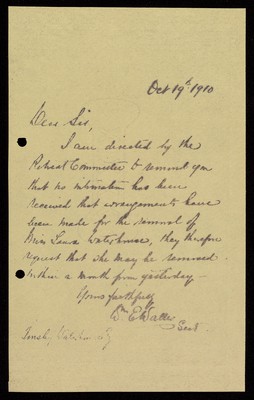 Oct 19th 1910
Dear Sir,
I am directed by the
Retreat Committee to remind you
that no intimation has been
received that arrangements have
been made for the removal of
Miss Laura Waterhouse, they therefore
request that she may be removed
within a month from yesterday —
Yours faithfully
Wm E Waller
Sect.